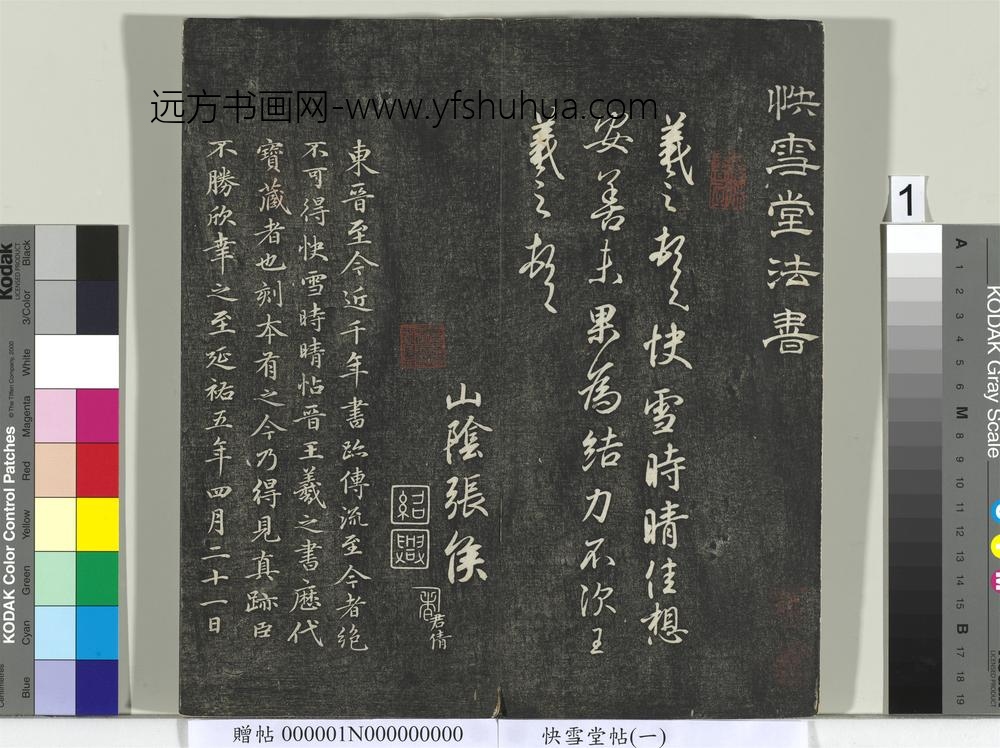 远方书画网-www.yfshuhua.com
快雪堂法書
羲之頓首快雪時晴佳想
安善未果為結力不次王
羲之頓首
山陰張侯
紹興
君倩
東晉至今近千年書跡傳流至今者絕
不可得快雪時晴帖晉王羲之書歷代
寶藏者也刻本有之今乃得見真跡臣
不勝欣幸之至延祐五年四月二十一日
贈帖 000001N000000000
快雪堂帖(一)
1
Kodak
LICENSED PRODUCT
KODAK Color Control Patches
© The Tiffen Company, 2000
Centimetres
Black
3/Color
White
Magenta
Red
Yellow
Green
Cyan
Blue
KODAK Gray Scale
A 1 2 3 4 5 6 M 8 9 10 11 12 13 14 15 B 17 18 19
C
Y
M